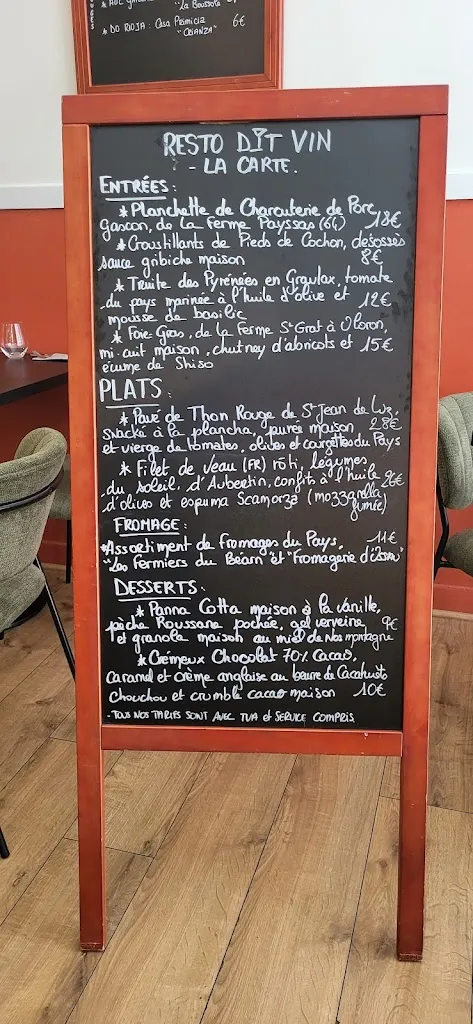 AOC
"La Boussole
* DO RIOJA : Casa Primicia 6€
"CRIANZA"
RESTO DÎT VIN
- LA CARTE.
ENTRÉES :
* Planchette de Charcuterie de Porc
gascon, de la Ferme Payssas (64) 18€
* Croustillants de Pieds de Cochon, désossés
sauce gribiche maison 8€
* Truite des Pyrénées en Gravlax, tomate
du pays marinée à l'huile d'olive et 12€
mousse de basilic
* Foie Gras, de la Ferme St Grat à Oloron,
mi cuit maison, chutney d'abricots et 15€
écume de Shiso
PLATS :
* Pavé de Thon Rouge de St Jean de Luz,
snacké à la plancha, purée maison 28€
et vierge de tomates, olives et courgettes du Pays
* Filet de Veau (FR) rôti, légumes
du soleil d'Aubertin, confits à l'huile 26€
d'olives et espuma Scamorza (mozzarella
fumée)
FROMAGE :
* Assortiment de fromages du Pays, 11€
"Les Fermiers du Béarn" et "Fromagerie d'
DESSERTS :
* Panna Cotta maison à la vanille,
pêche Roussane pochée, gel verveine 9€
et granola maison au miel de nos montagne
* Crémeux Chocolat 70% Cacao,
caramel et crème anglaise au beurre de Cacahuète
chouchou et crumble cacao maison 10€
- TOUS NOS TARIFS SONT AVEC TVA et SERVICE COMPRIS